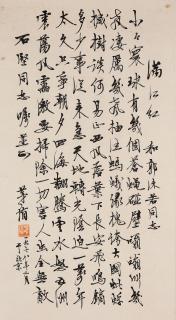 滿江紅 和郭沫若同志
小小寰球有幾個蒼蠅碰壁嗡嗡叫幾
聲凄厲幾聲抽泣螞蟻緣槐誇大國蚍蜉
撼樹談何易正西風落葉下長安飛鳴鏑
多少事從來急天地轉光陰迫一萬年
太久只爭朝夕四海翻騰雲水怒五洲
震蕩風雷激要掃除一切害人蟲全無敵
石堅同志囑 正 茅盾
一九七八年 月
于北京